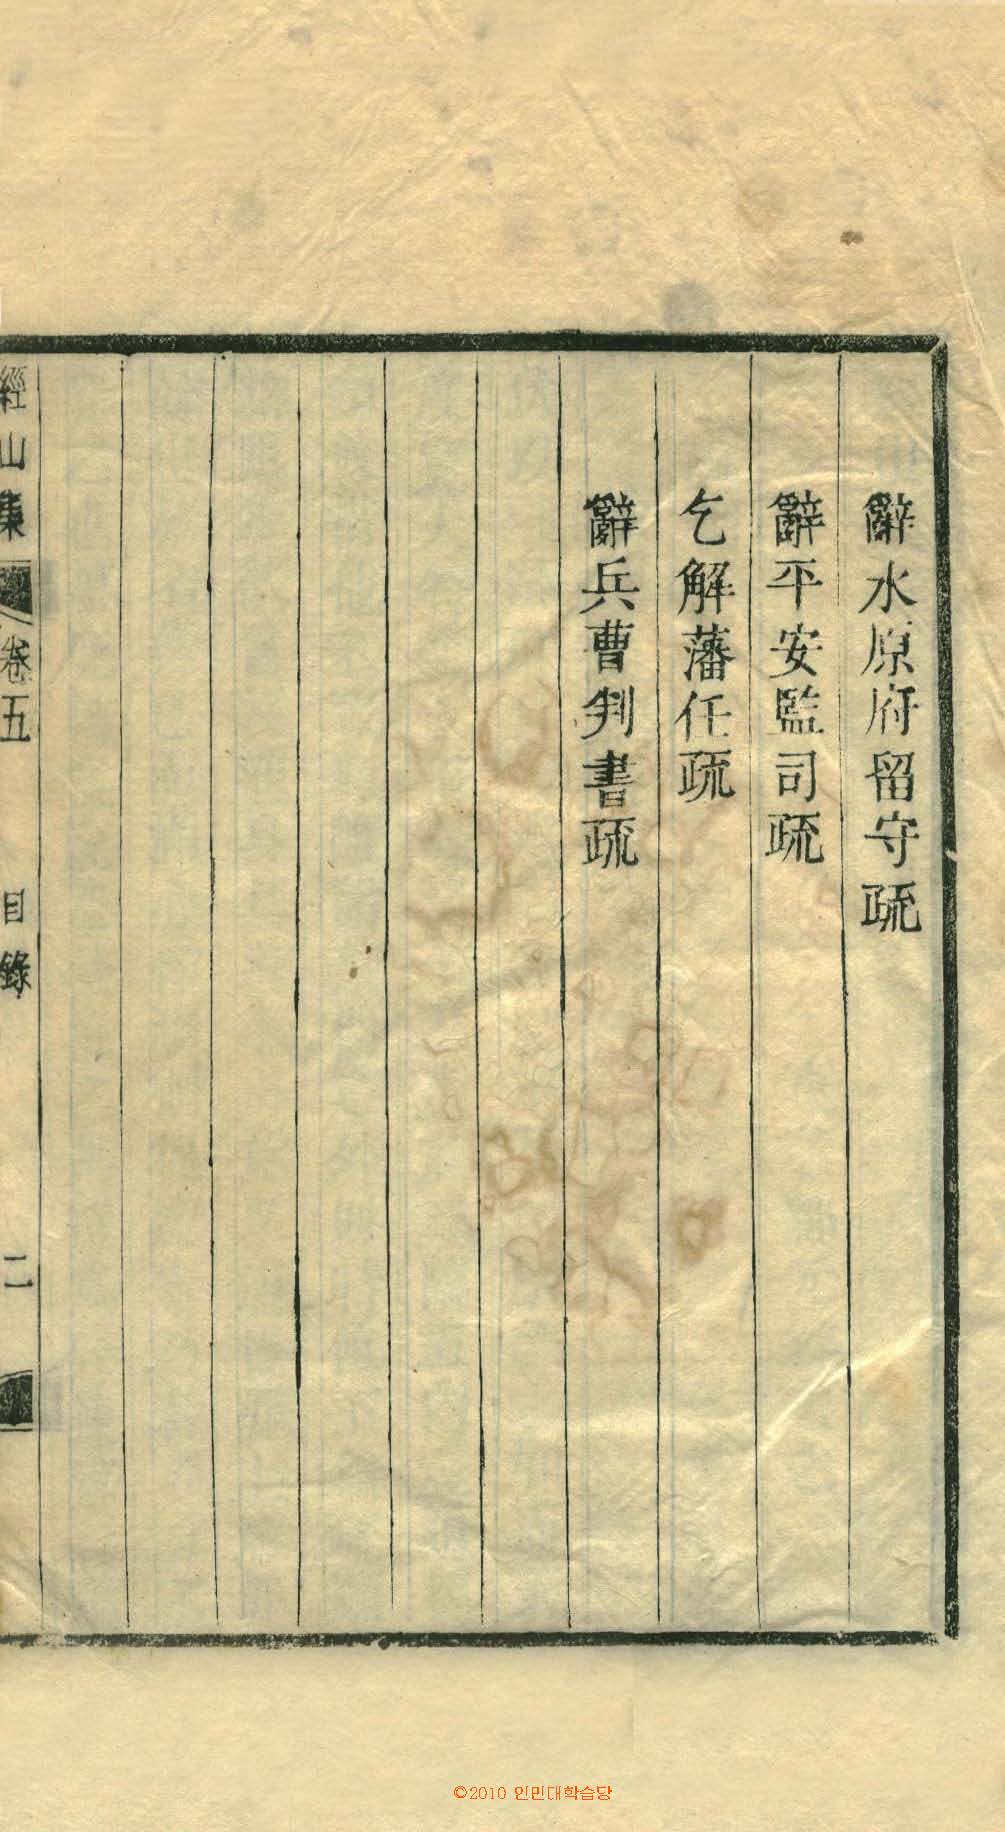 辭水原府留守疏
辭平安監司疏
乞解藩任疏
辭兵曹判書疏
經山集
卷五
目錄
二
©2010 인민대학습당